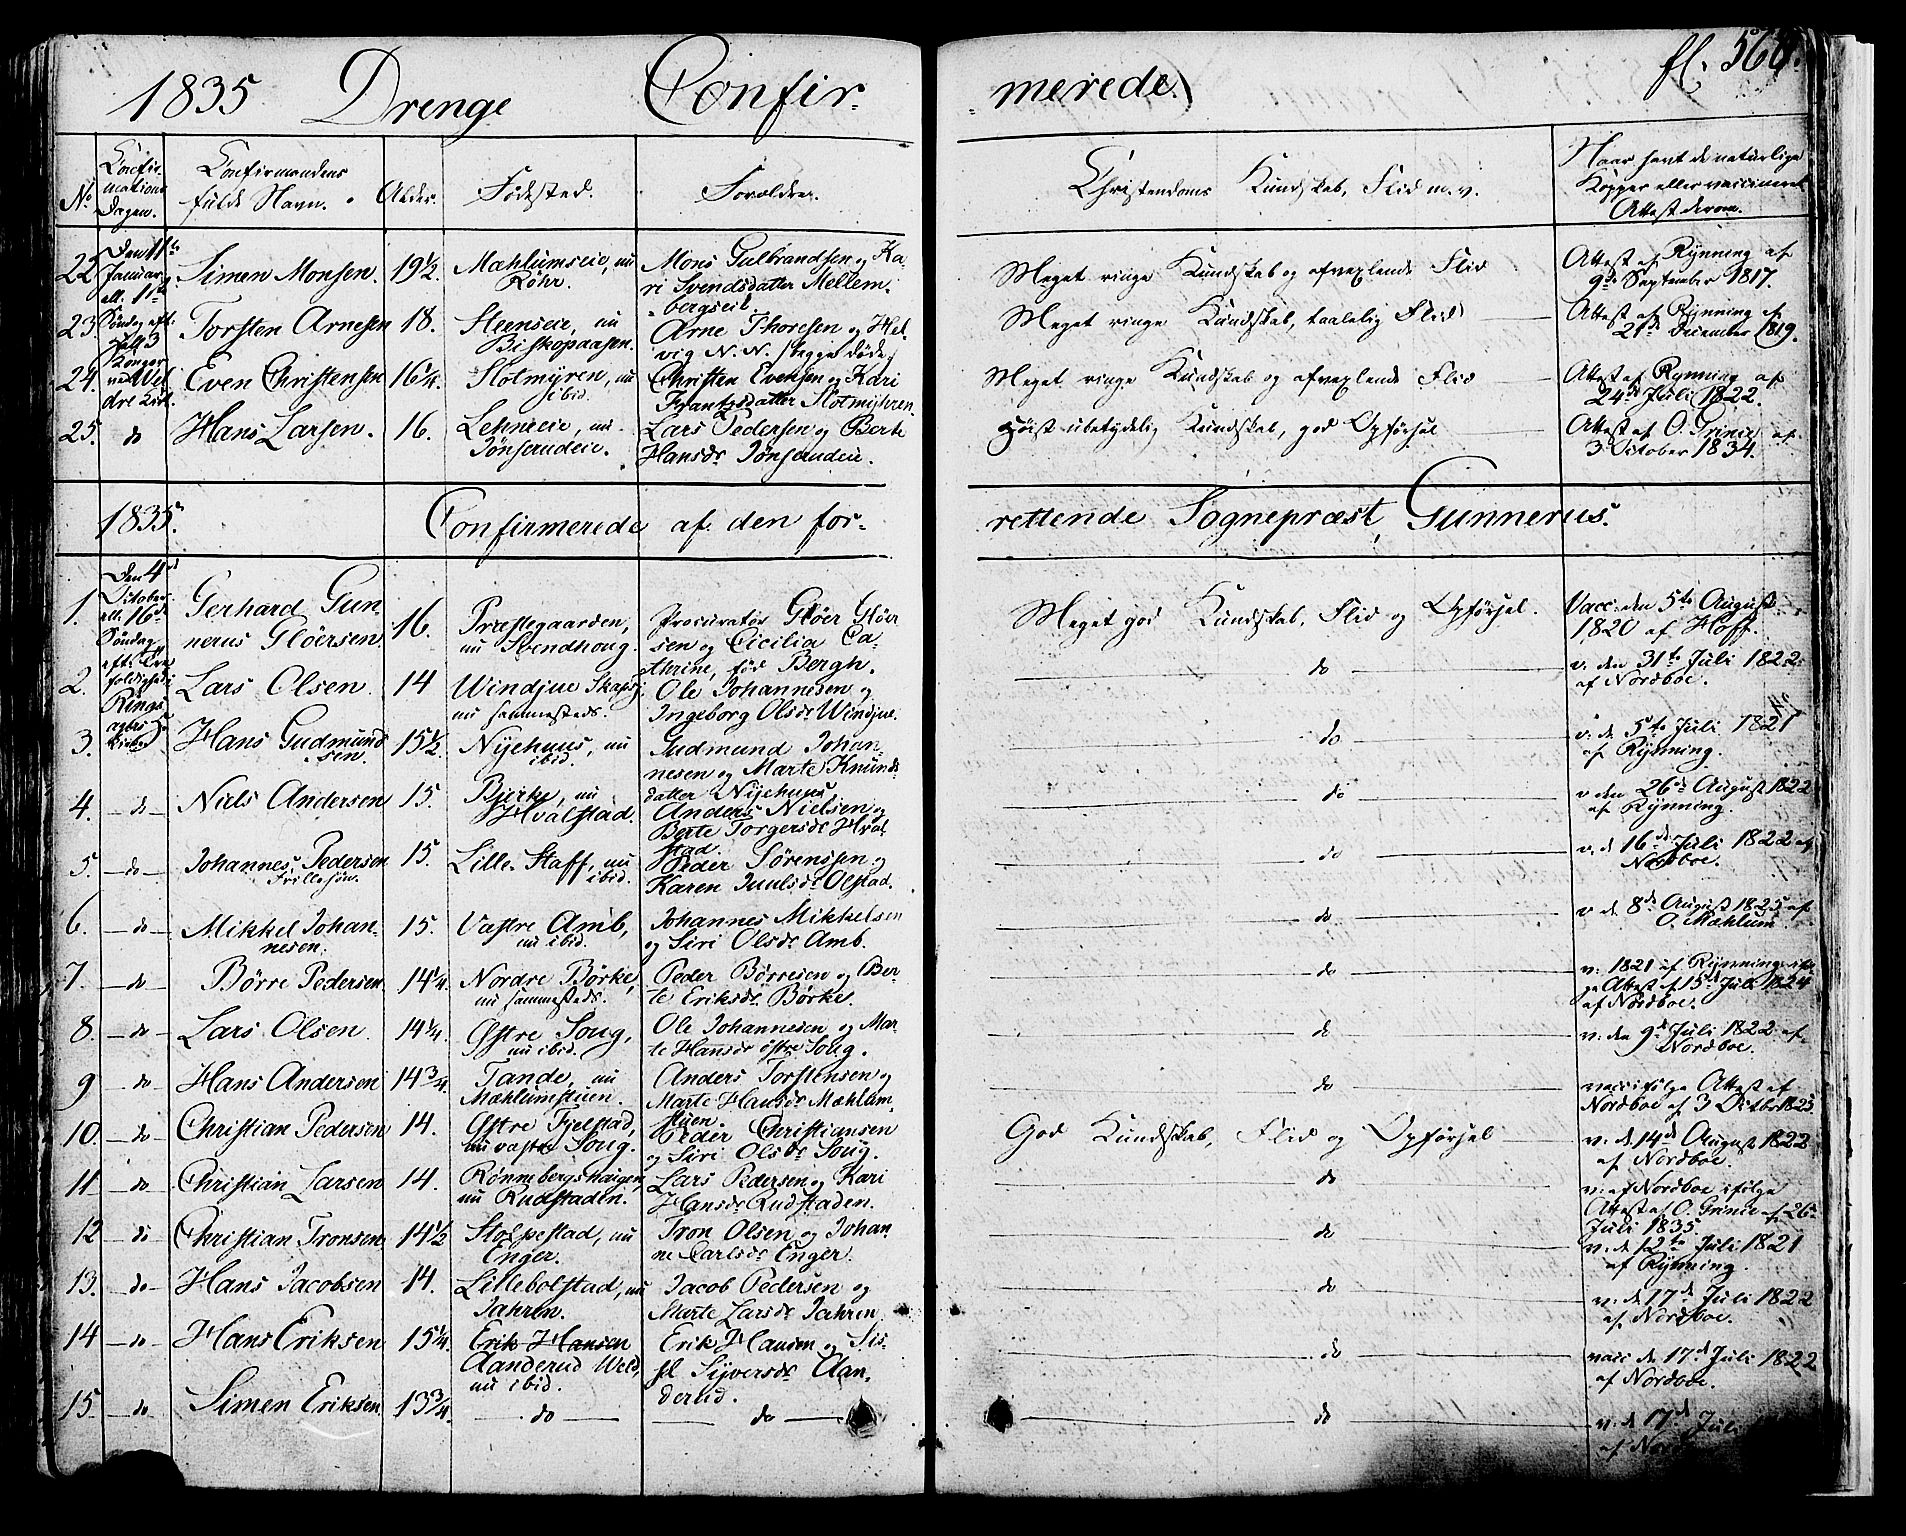 1835 Drenge Confir-
merede.
fl. 560.
No
Confir-
mations
Dagen.
Confirmandens
fulde Navn.
Alder.
Fødested.
Forældre.
Christendoms Kundskab, Flid m. v.
Naar havt de naturlige
Kopper eller vaccineret
Attest derom.
22
Den 11te
Januar
ell. 1ste
Simen Monsen.
19½
Mæhlumseie, nu
Røhr.
Mons Gulbrandsen og Ka-
ri Svendsdatter Mellem-
bergseie.
Meget ringe Kundskab og afvexlende Flid
Attest af Rynning af
9de September 1817.
23
Søndag eft.
Hell. 3
Konger
ved Vel
dre Kirk.
Torsten Arnesen
18.
Steenseie, nu
Biskopaasen.
Arne Thoresen og Hel
vig N. N. /begge døde/
Meget ringe Kundskab, taalelig Flid
Attest af Rynning af
21de December 1819.
24.
Even Christensen
16¼.
Slotmyren, nu
ibid.
Christen Evensen og Kari
Frantzdatter Slotmyhren.
Meget ringe Kundskab og afvexlende Flid
Attest af Rynning af
24de Juli 1822.
25.
do
Hans Larsen.
16.
Lehneeie, nu
Jønsrudeie.
Lars Pedersen og Berte
Hansdr Jønsrudeie.
høist ubetydelig Kundskab, god Opførsel
Attest af O. Grinie af
3 October 1834.
1835.
Confirmerede af den for-
rettende Sognepræst, Gunnerus.
1.
Den 4de
October
ell. 16de
Søndag
eft. Tre
foldighed i
Rings
agers
Kirke
Gerhard Gun
nerus Gløersen
16.
Præstegaarden,
nu Svendhoug.
Procurator Gløer Gløer
sen og Cicilia Ca-
thrine, fød Bergh.
Meget god Kundskab, Flid og Opførsel.
Vacc. den 5te August
1820 af Hoff.
2.
Lars Olsen.
14
Windjue
nu sammesteds.
Ole Johannesen og
Ingeborg Olsdr Windjue.
do
v. den 31te Juli 1822
af Nordboe.
3.
Hans Gudmund
sen.
15½
Nyehuus, nu
ibid.
Gudmund Johan-
nesen og Marte Knuds
datter Nyehuus
do
v. d. 5te Juli 1821
af Rynning.
4.
do
Niels Andersen
15.
Bjerke, nu
Hvalstad.
Anders Nielsen og
Berte Torgersdr Hval
stad.
do
v den 26de August 1822
af Rynning.
5.
do
Johannes Pedersen
Frillesøn.
15.
Lille Staff, nu
ibid.
Peder Sørenssen og
Karen Juulsdr Olstad.
do
v. d. 16de Juli 1822 af
Nordboe.
6.
do
Mikkel Johan-
nesen.
15.
Vestre Amb,
nu ibid.
Johannes Mikkelsen
og Siri Olsdr Amb.
do
v d. 8de August 1825 af
O. Mæhlum
7.
do
Børre Pedersen
14¼.
Nordre Børke,
nu sammesteds.
Peder Børresen og Ber-
te Eriksdr Børke.
do
v: 1821 af Rynning iføl
ge Attest af 15de Juli 1824
af Nordboe.
8.
do
Lars Olsen
14¼.
Østre Soug,
nu ibid.
Ole Johannesen og Mar-
te Hansdr østre Soug.
do
v: den 9de Juli 1822 af
Nordboe.
9
do
Hans Andersen
14¾.
Tande, nu
Mæhlumstuen.
Anders Torstensen og
Marte Hansdr Mæhlum-
stuen.
do
vacc ifølge Attest af
Nordboe af 3 Octbr 1825.
10.
do
Christian Pedersen
14.
Østre Fjelstad,
nu vestre Soug.
Peder Christiansen
og Siri Olsdr Soug.
God Kundskab, Flid og Opførsel
v: d. 14de August 1822
af Nordboe.
11
do
Christian Larsen
14.
Rønnebergshaugen,
nu Rudstaden.
Lars Pedersen og Kari
Hansdr Rudstaden.
do
v: af Nordboe ifølge
Attest af O. Grinie af 26
Juli 1835
12
do
Christian Tronsen
14½
Stolpestad, nu
Enger.
Tron Olsen og Johan
ne Carlsdr Enger.
do
v: d. 12te Juli 1821
af Rynning.
13.
do
Hans Jacobsen
14.
Lillebolstad, nu
Jahren.
Jacob Pedersen og
Marte Larsdr Jahren
do
v: d. 17de Juli 1822
af Nordboe.
14
do
Hans Eriksen
15¼.
Erik Hansen
Aanderud Weld,
nu ibid.
Erik Hansen og Sis
sel Syversdr Aan-
derud.
do
vacc d. 17de Juli 1822
af Nordboe.
15
do
Simen Eriksen.
13¾.
do
do
do
v: d. 17de Juli
af